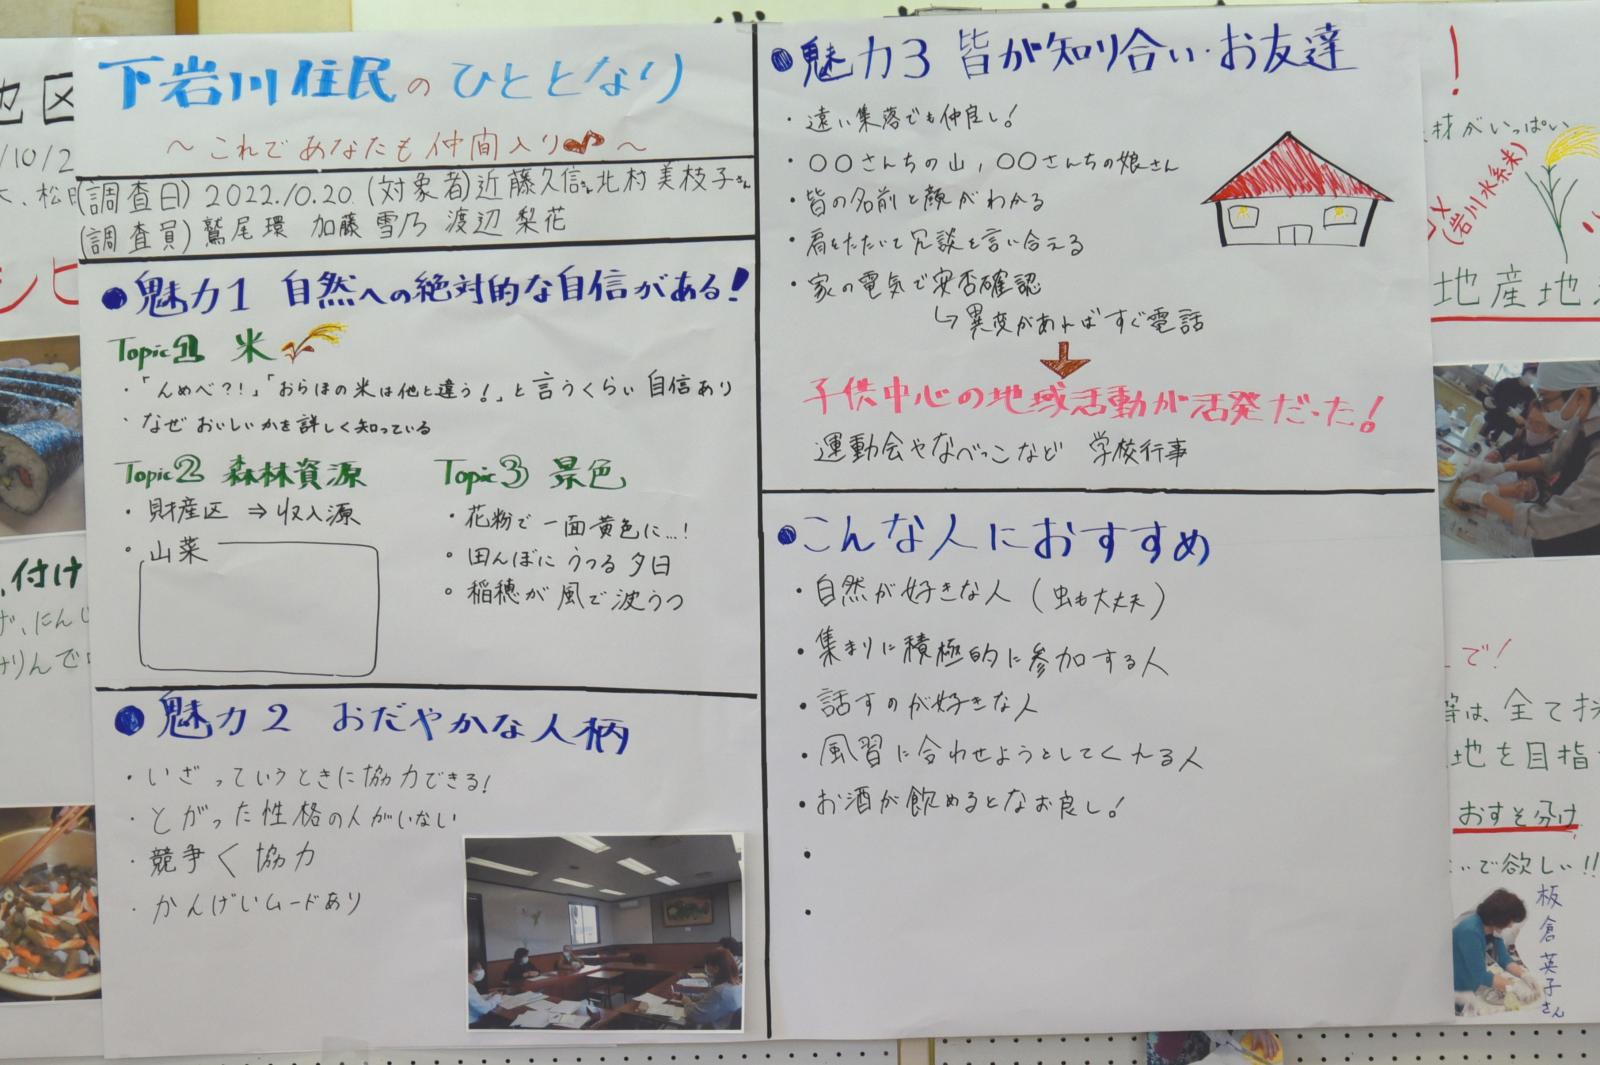 下岩川住民のひととなり
～これであなたも仲間入り♪～
(調査日) 2022.10.20 (対象者)近藤久信さん北村美枝子さん
(調査員) 鷲尾環 加藤雪乃 渡辺梨花
●魅力1 自然への絶対的な自信がある!
Topic1 米
・「んめべ?!」「おらほの米は他と違う!」と言うくらい自信あり
・なぜおいしいかを詳しく知っている
Topic2 森林資源
・財産区 ⇒ 収入源
・山菜
Topic3 景色
・花粉で一面黄色に…!
・田んぼにうつる夕日
・稲穂が風で波うつ
●魅力2 おだやかな人柄
・いざっていうときに協力できる!
・とがった性格の人がいない
・競争<協力
・かんげいムードあり
●魅力3 皆が知り合い・お友達
・遠い集落でも仲良し!
・〇〇さんちの山,〇〇さんちの娘さん
・皆の名前と顔がわかる
・肩をたたいて冗談を言い合える
・家の電気で安否確認
↳異変があればすぐ電話
子供中心の地域活動が活発だった!
運動会やなべっこなど 学校行事
●こんな人におすすめ
・自然が好きな人(虫も大丈夫)
・集まりに積極的に参加する人
・話すのが好きな人
・風習に合わせようとしてくれる人
・お酒が飲めるとなお良し!
地区
/10/2
付け
材がいっぱい
(岩川水系米)
地産地
で!
等は、全て
地を目指
おすそ分け
いで欲しい!!
板倉英子さん